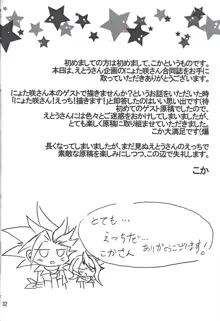 初めましての方は初めまして、こかというものです。
本日は、えとうさん企画のにょた咲さん合同誌をお手に
取っていただきありがとうございます。
にょた咲さん本のゲストで描きませんか?というお話をいただいた時
「にょた咲さん!えっち!描きます!」と即答したのはいい思い出です(待
初めてのゲスト原稿でしたので、
えとうさんには色々とご迷惑をおかけしてしまいましたが、
とても楽しく原稿に取り組ませていただきました。
こか大満足です(爆
長くなってしまいましたが、まだ見ぬえとうさんのえっちで
素敵な原稿を楽しみにしつつ、この辺で失礼します。
こか
とても…
えっちだ…
こかさん
ありがとうございます!
32